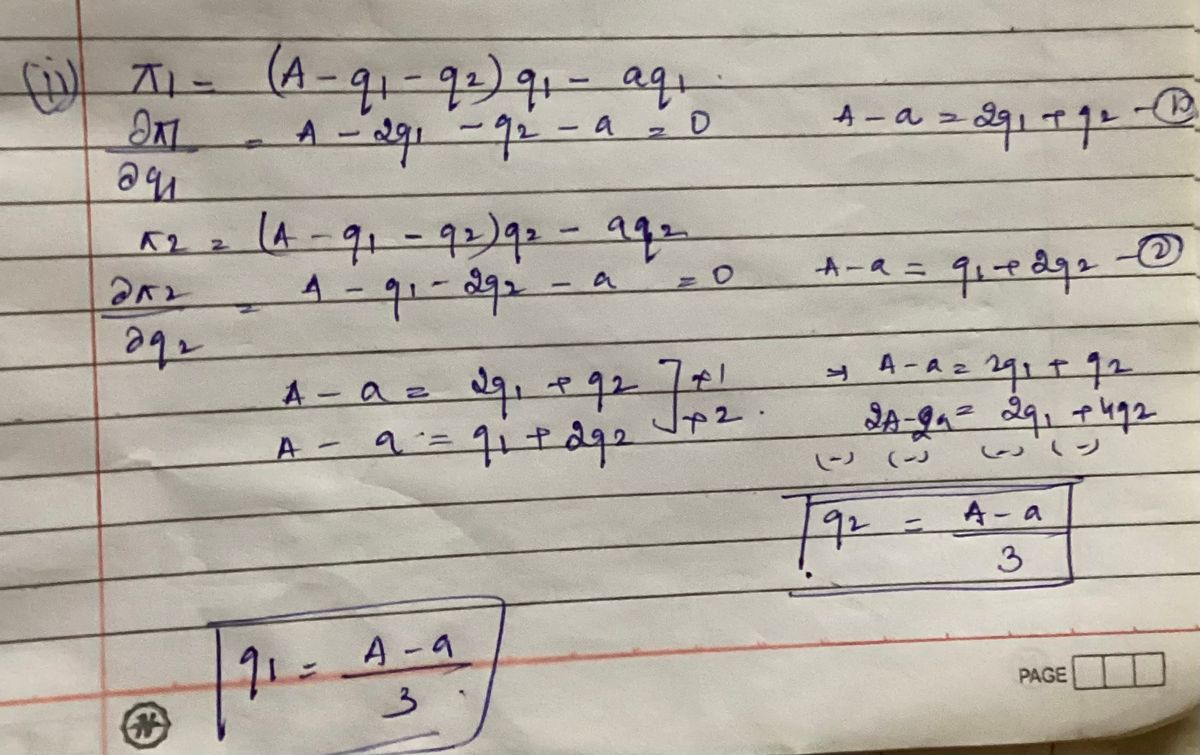 (ii) π1 = (A - q1 - q2) q1 - aq1
∂π1/∂q1 = A - 2q1 - q2 - a = 0    A - a = 2q1 + q2 - ①
π2 = (A - q1 - q2) q2 - aq2
∂π2/∂q2 = A - q1 - 2q2 - a = 0    A - a = q1 + 2q2 - ②
A - a = 2q1 + q2 ] ×1    ⇒ A - a = 2q1 + q2
A - a = q1 + 2q2 ] ×2    2A - 2a = 2q1 + 4q2
(-) (-) (-) (-)
q2 = A - a / 3
q1 = A - a / 3
PAGE